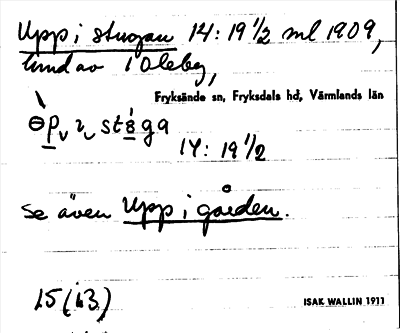 Upp i stugan 14: 19 1/2 ml 1909,
lund av i Oleby,
Fryksände sn, Fryksdals hd, Värmlands län
14: 19 1/2
se även Upp i gården.
15 (i3)
ISAK WALLIN 1911